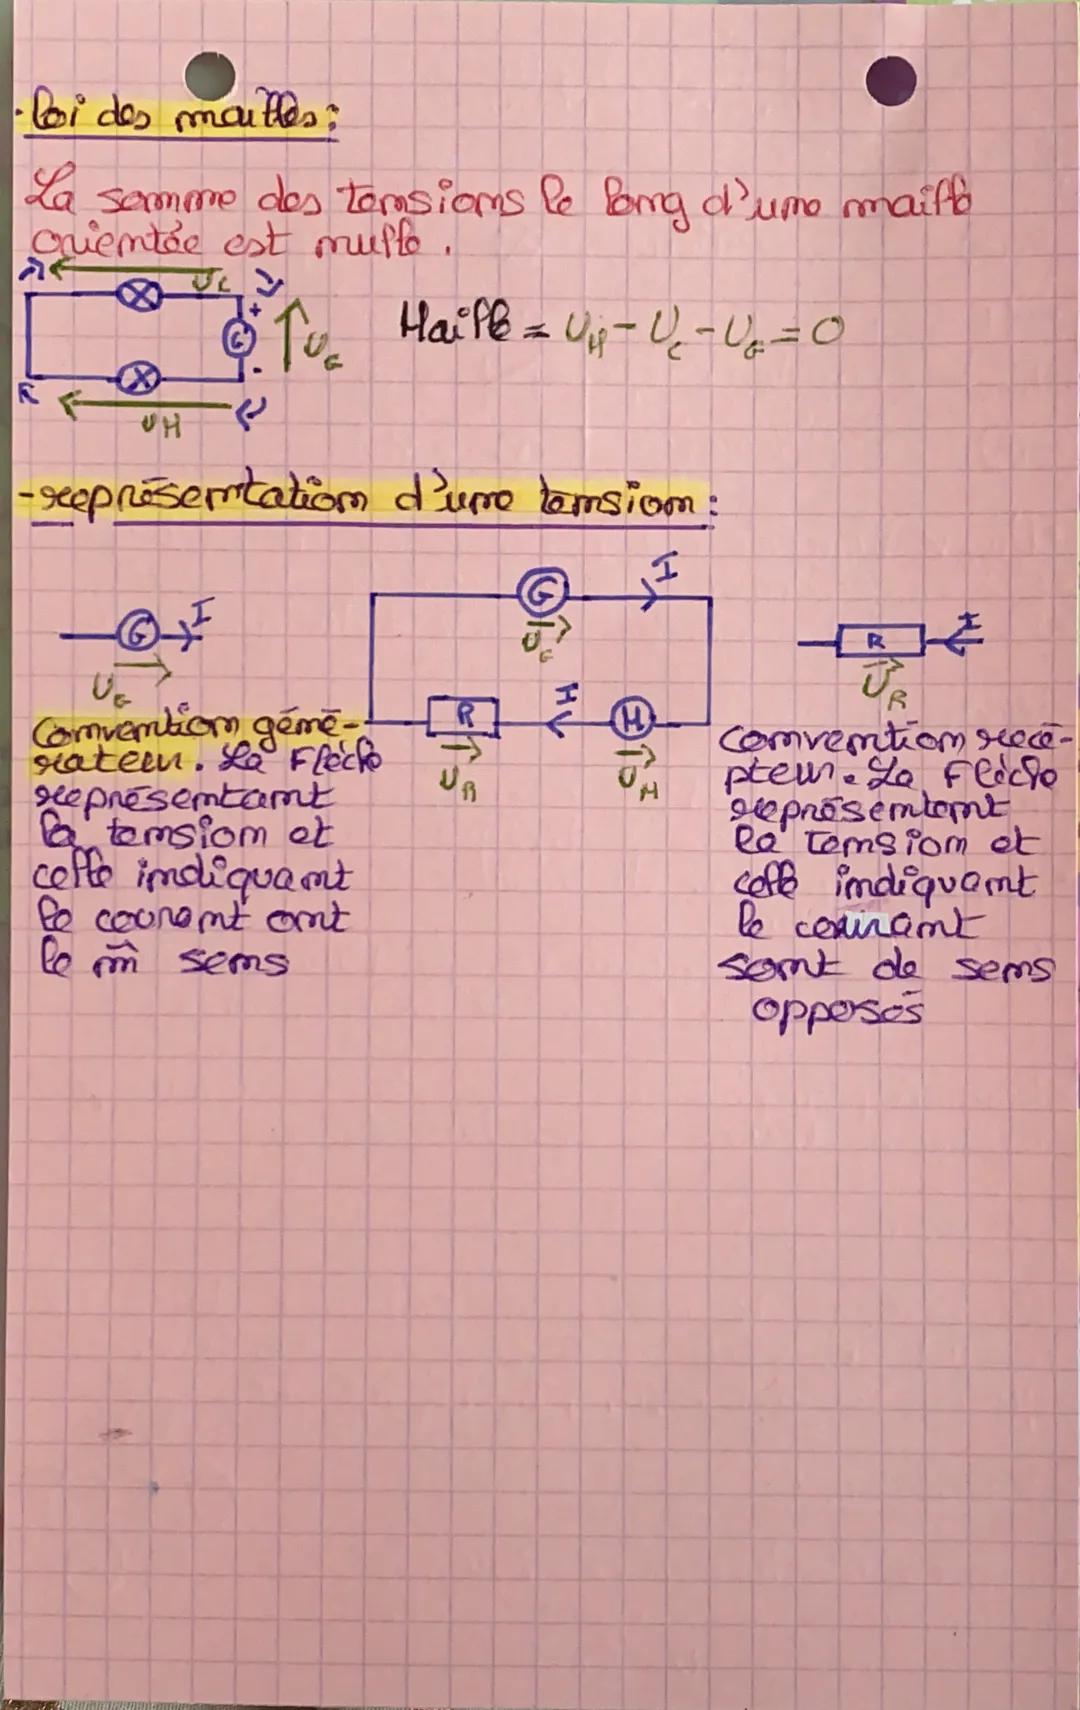 • Loi des mailles :
La somme des tensions le long d'une maille
orientée est nulle.
UC
+
G
UG
-
UH
Maille = UM - UC - UG = 0
- représentation d'une tension :
G I
UG
G I
UG
R I M
UR UM
R I
UR
Convention géné-
rateur. La flèche
représentant
la tension et
celle indiquant
le courant ont
le m̂ sens
Convention récé-
pteur. La flèche
représentant
la tension et
celle indiquant
le courant
sont de sens
opposés